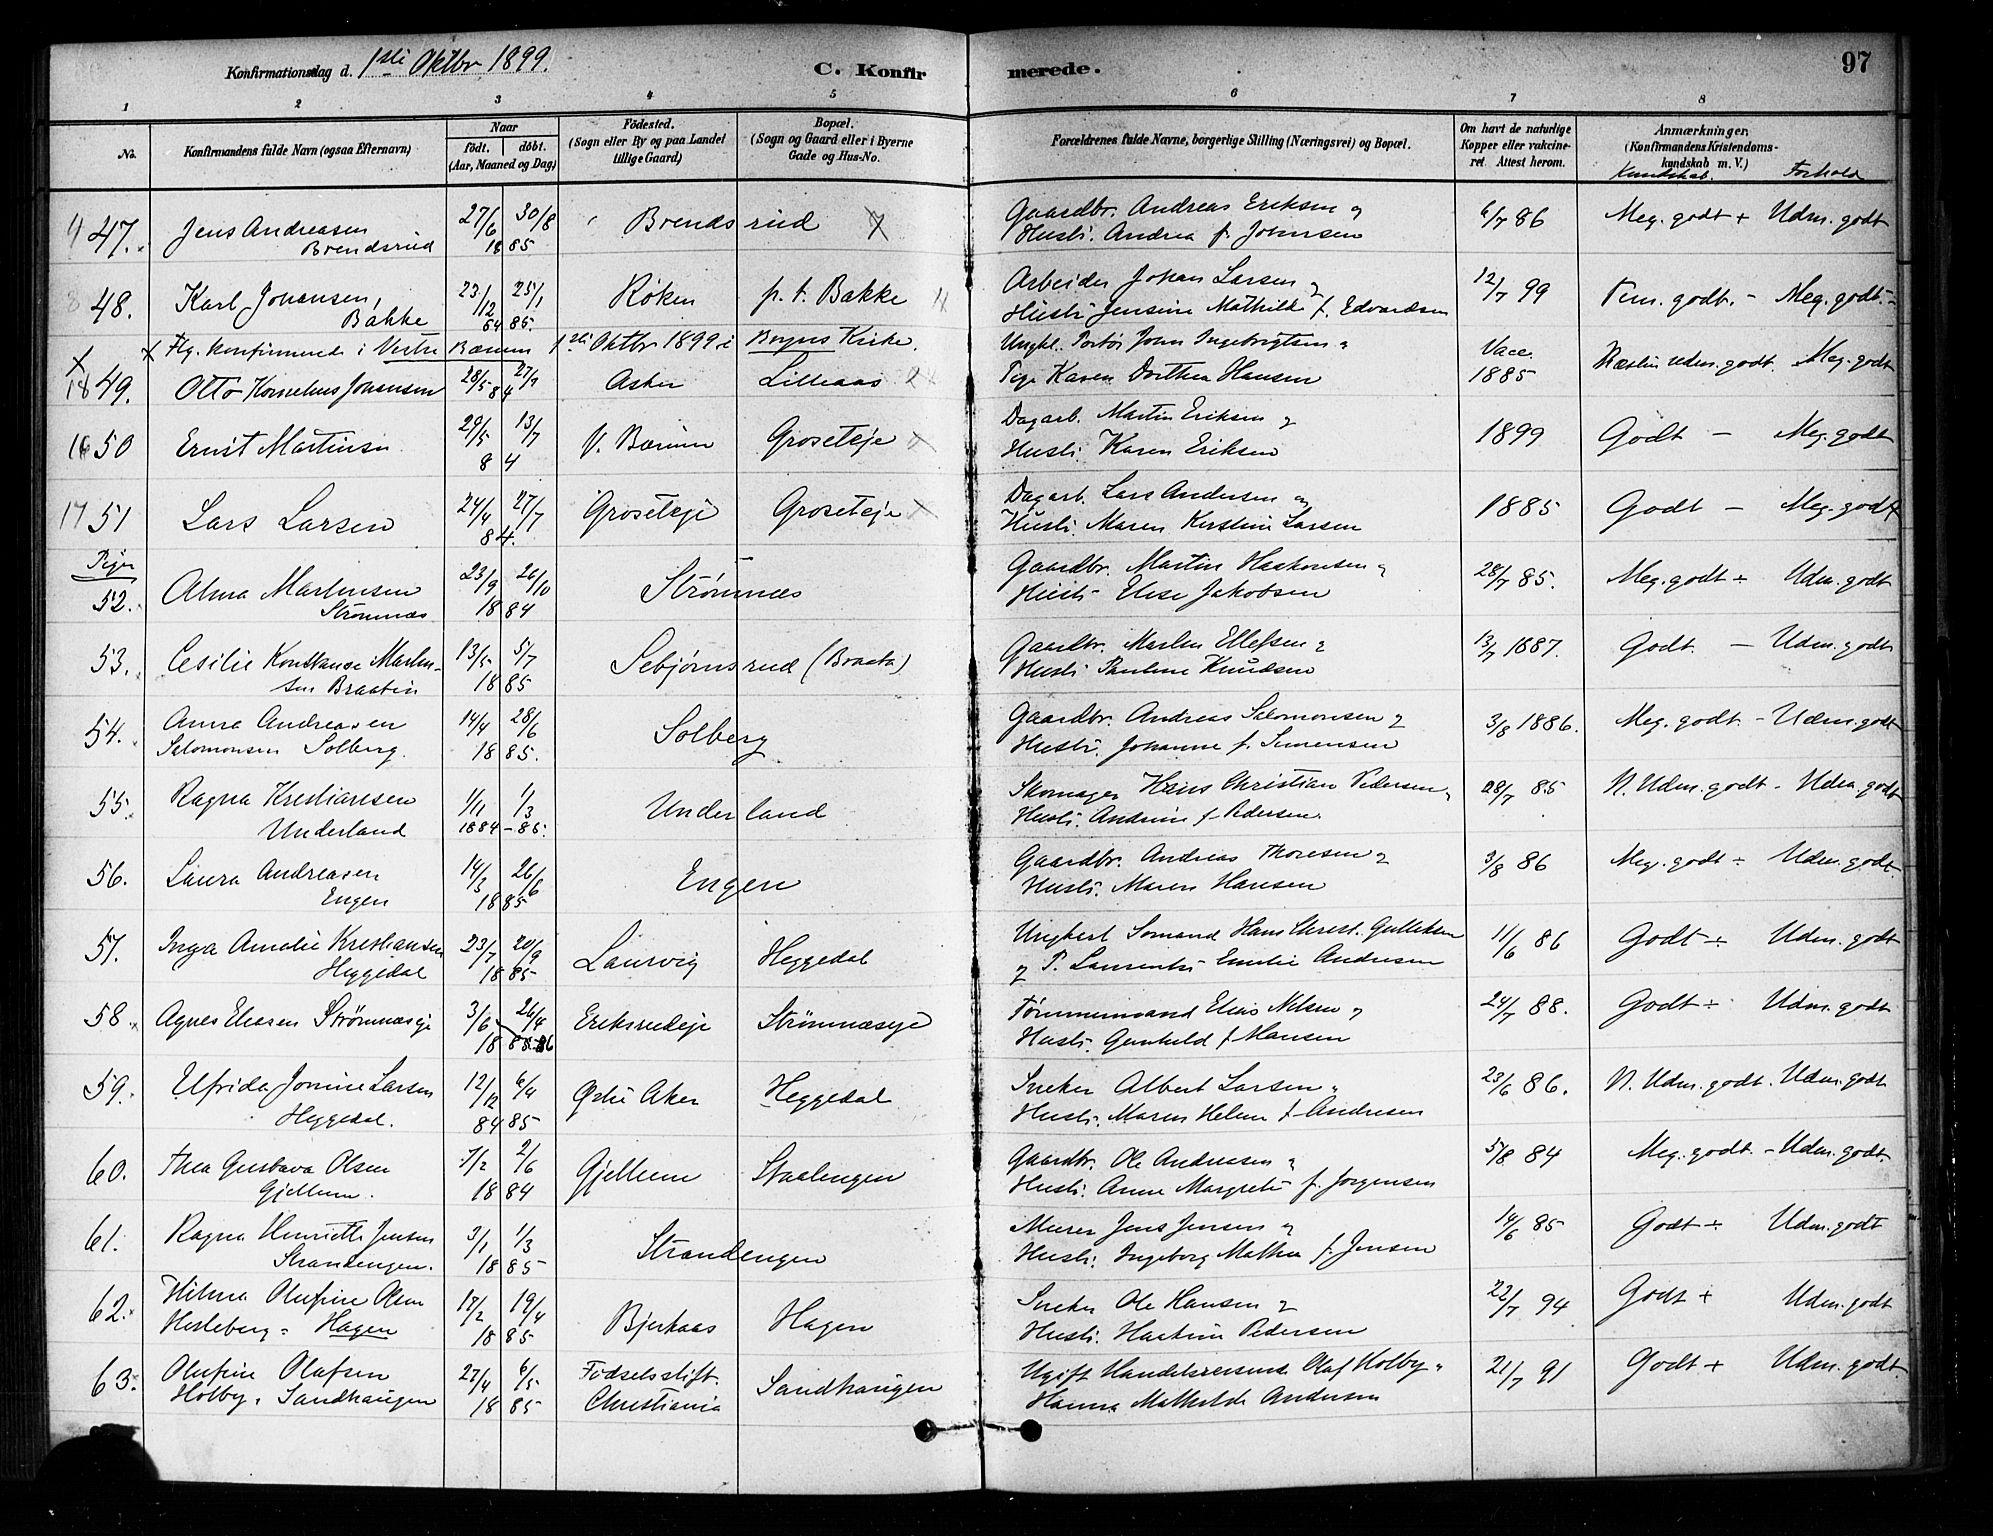 Konfirmationsdag d. 1ste Oktbr 1899. C. Konfirmerede. 97
1 2 3 4 5 6 7 8
No. Konfirmandens fulde Navn (ogsaa Efternavn) Naar födt. döbt. (Aar, Maaned og Dag) Födested. (Sogn eller By og paa Landet tillige Gaard) Bopæl. (Sogn og Gaard eller i Byerne Gade og Hus-No. Forældrenes fulde Navne, borgerlige Stilling (Næringsvei) og Bopæl. Om havt de naturlige Kopper eller vaccineret. Attest herom. Anmærkninger. (Konfirmandens Kristendomskundskab m. V.) Kundskab. Forhold
47. Jens Andreasen 27/6 30/8 Brendsrud Gaardbr. Andreas Eriksen og 6/7 86 Meg. godt + Udm. godt
Brendsrud 1885 Hustr. Andrea f. Johnsen
48. Karl Johansen, 23/12 25/1 Røken p. t. Bakke Arbeider Johan Larsen og 12/7 99 Tem. godt. - Meg. godt.
Bakke 84 85. Hustr. Jensine Mathilde f. Edvardsen
Flg. konfirmerede i Vestre Bærum 1ste Oktbr 1899 i Bryns Kirke.
49. Otto Kornelius Johansen 28/5 27/7 84 Asker Lilleaas Ungkl. Johan Ingebrigtsen Vacc. 1885 Næsten udm. godt. Meg. godt
Pige Karen Dorthea Hansen
16 50 Ernst Martinsen 29/5 13/7 V. Bærum Groseteje Dagarb. Martin Eriksen og 1899 Godt - Meg. godt
84 Hustr. Karen Eriksen
17 51 Lars Larsen 24/4 27/7 Groseteje Groseteje Dagarb. Lars Andersen og 1885 Godt - Meg. godt
84. Hustr. Maren Kirstine Larsen
Piger
52. Alma Martinsen 23/9 26/10 Strømnæs Gaardbr. Martin Haakonsen og 28/7 85. Meg. godt + Udm. godt
Strømnæs 1884 Hustr. Elise Jakobsen
53. Cesilie Konstanse Martin- 13/5 5/7 Sebjørnsrud (Braata) Gaardbr. Martin Ellefsen og 13/7 1887. Godt. - Udm. godt
sen Braaten 1885 Hustr. Pauline Knudsen
54. Anna Andreasen 14/4 28/6 Solberg Gaardbr. Andreas Salomonsen og 3/8 1886. Meg. godt - Udm. godt
Salomonsen Solberg. 1885. Hustr. Johanne f. Simensen
55. Ragna Kristiansen 1/11 1/3 Underland Skomager Hans Christian Pedersen 28/7 85 N. Udm. godt - Udm. godt
Underland 1884-85. Hustr. Andrine f. Pedersen.
56. Laura Andreasen 14/3 26/6 Engen Gaardbr. Andreas Thoresen og 3/8 86 Meg. godt + Udm. godt.
Engen 1885 Hustr. Maren Hansen
57. Inga Amalie Kristiansen 23/7 20/9 Laurvig Heggedal Ungkarl Sømand Hans Christ. Gulliksen 11/6 86 Godt + Udm. godt
Heggedal 1885 og P. Laurentse Emilie Andresen
58. Agnes Eliasen Strømnæseje 3/6 26/4 Eriksrudeje Strømnæseje Tømmermand Elias Nilsen og 24/7 88. Godt + Udm. godt
1885-86 Hustr. Gunhild f. Hansen
59. Elfrida Jonine Larsen 12/12 6/4 Østre Aker Heggedal Sneker Albert Larsen og 23/6 86. N. Udm. godt. Udm. godt
Heggedal. 84 85 Hustr. Maren Helene f. Andresen
60. Thea Gustava Olsen 7/2 2/6 Gjellum Staalengen Gaardbr. Ole Andreasen og 5/8 84 Meg. godt. - Udm. godt.
Gjellum. 1884 Hustr. Anne Margrete f. Jørgensen
61. Ragna Henriette Jensen 3/1 1/3 Strandengen Murer Jens Jensen og 14/6 85 Godt + Udm. godt
Strandengen. 1885 Hustr. Ingeborg Mathea f. Jensen
62. Hilma Olufine Olsen 17/2 19/4 Bjerkaas Hagen Sneker Ole Hansen og 22/7 94 Godt + Udm. godt
Hesleberg = Hagen 1885 Hustr. Hartine Pedersen
63. Olufine Olafsen 27/4 6/5 Fødselsstift. Sandhaugen Ugift Handelsreisende Olaf Holby 21/7 91 Godt + Udm. godt.
Holby, Sandhaugen 1885 Christiania Hanna Mathilde Andersen